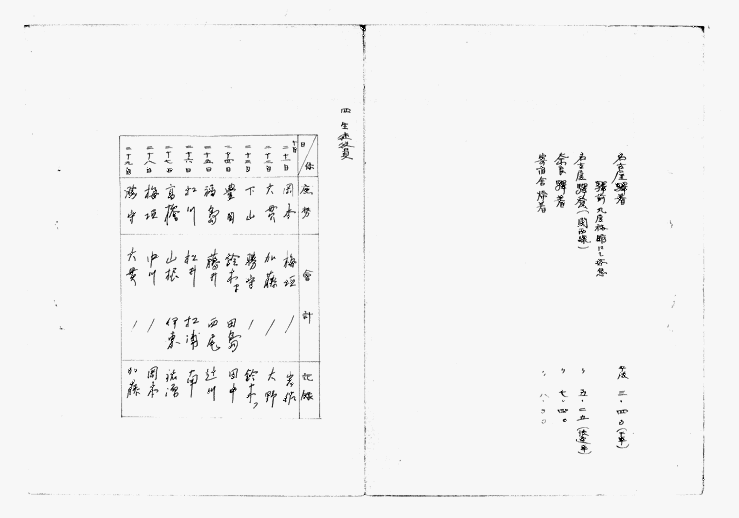 名古屋驛着 午後 三・四〇(下車)
驛前 九屋旅館ニテ休息
名古屋驛發(関西線) 〃 五・二五(快速車)
奈良驛着 〃 七・四〇
寄宿舎帰着 〃 八・〇〇
四 生徒役員
日 係 庶務 會計 記録
二十一日 岡本 梅垣 / 岩松
二十二日 大貫 加藤 / 大野
二十三日 下山 勝守 / 鈴木フ
二十四日 豊田 鈴木 田島 田中
二十五日 福島 藤井 西尾 辻川
二十六日 松川 松井 松浦 南
二十七日 高橋 山根 伊東
二十八日 梅垣 中川 / 岡本
二十九日 勝守 大貫 / 加藤